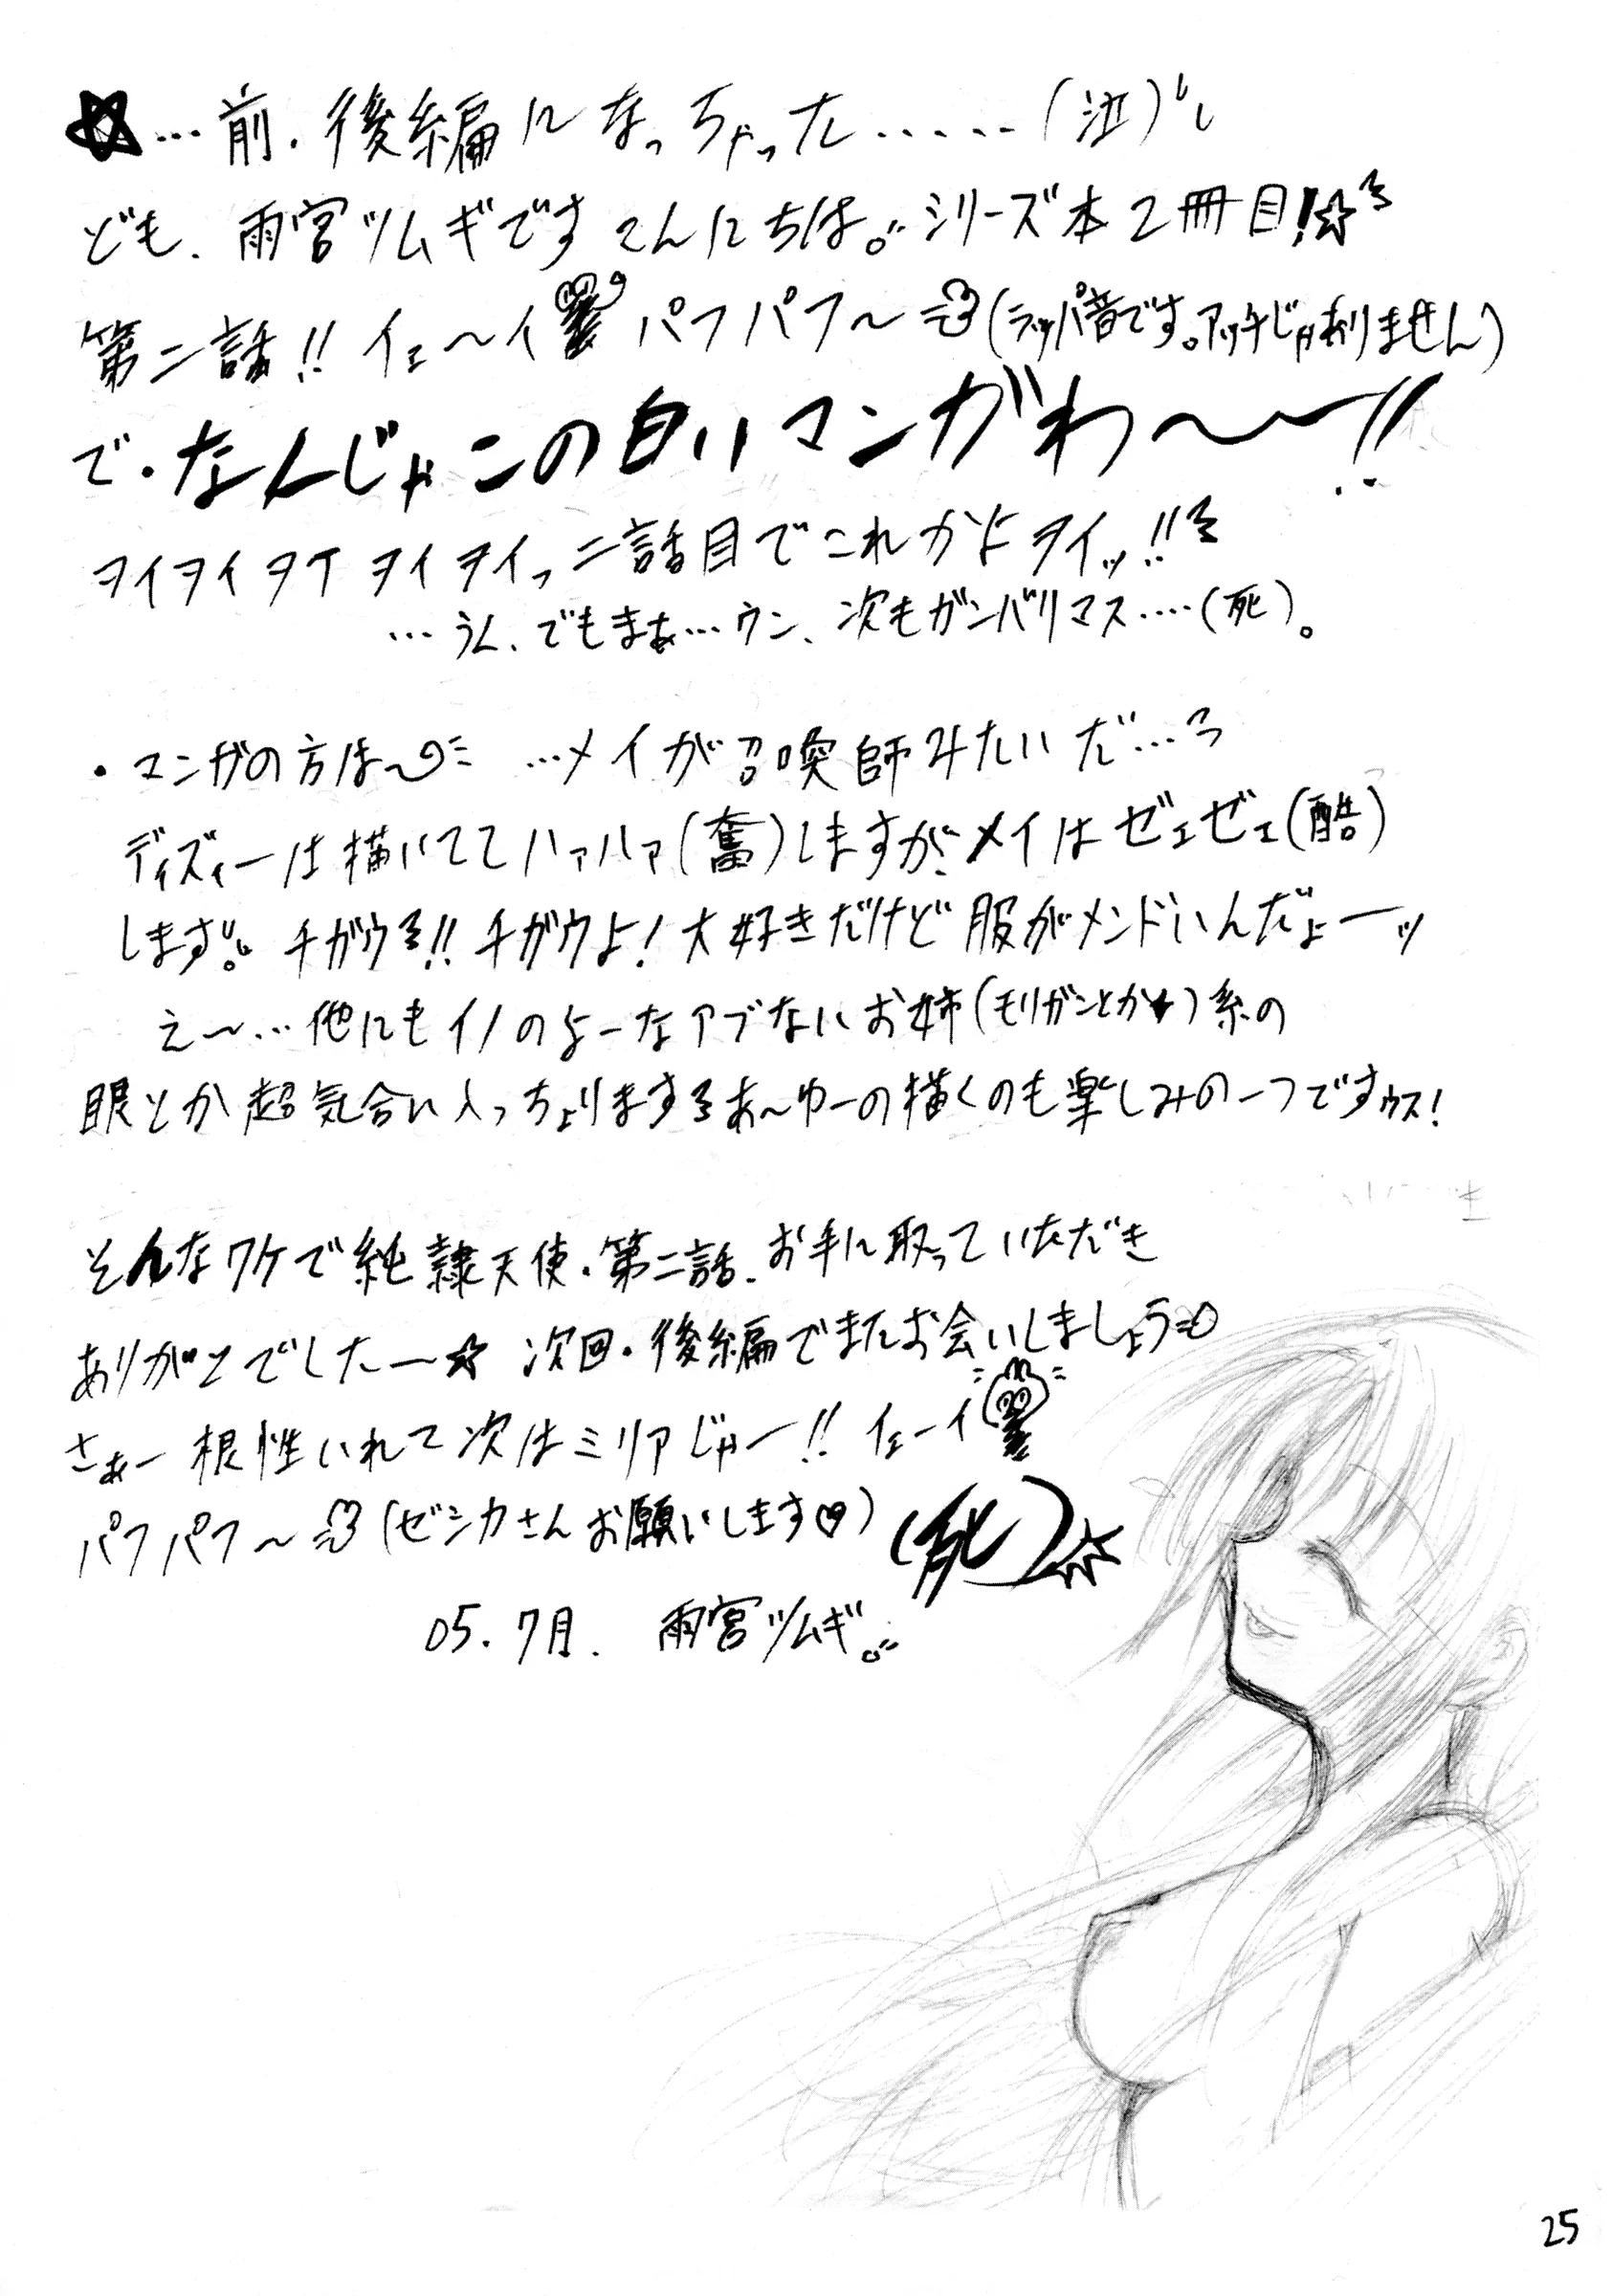 ☆…前・後編になっちゃった……(泣)
ども、雨宮ツムギです こんにちは。シリーズ本2冊目!☆
第二話!! イェ〜イ パフパフ〜(ラッパ音です。アッチじゃありません)
で・なんじゃこの白いマンガわ〜〜!!
ヲイヲイヲイヲイヲイっ 二話目でこれかよヲイッ!!
…うん、でもまぁ…ウン、次もガンバリマス…(死)。
・マンガの方は〜 …メイが召喚師みたいだ…
ディズィーは描いててハァハァ(奮)しますが、メイはゼェゼェ(酷)
します。チガウ!!チガウよ!大好きだけど服がメンドいんだよーッ
え〜…他にもイノのよーなアブないお姉(モリガンとか★)系の
眼とか超気合い入っちょります あ〜ゆーの描くのも楽しみの一つですゥス!
そんなワケで純隷天使・第二話、お手に取っていただき
ありがとでしたー☆ 次回・後編でまたお会いしましょう
さぁー根性いれて次はミリアじゃー!! イェーイ
パフパフ〜(ゼシカさんお願いします♡)(死)☆
05.7月. 雨宮ツムギ。
25